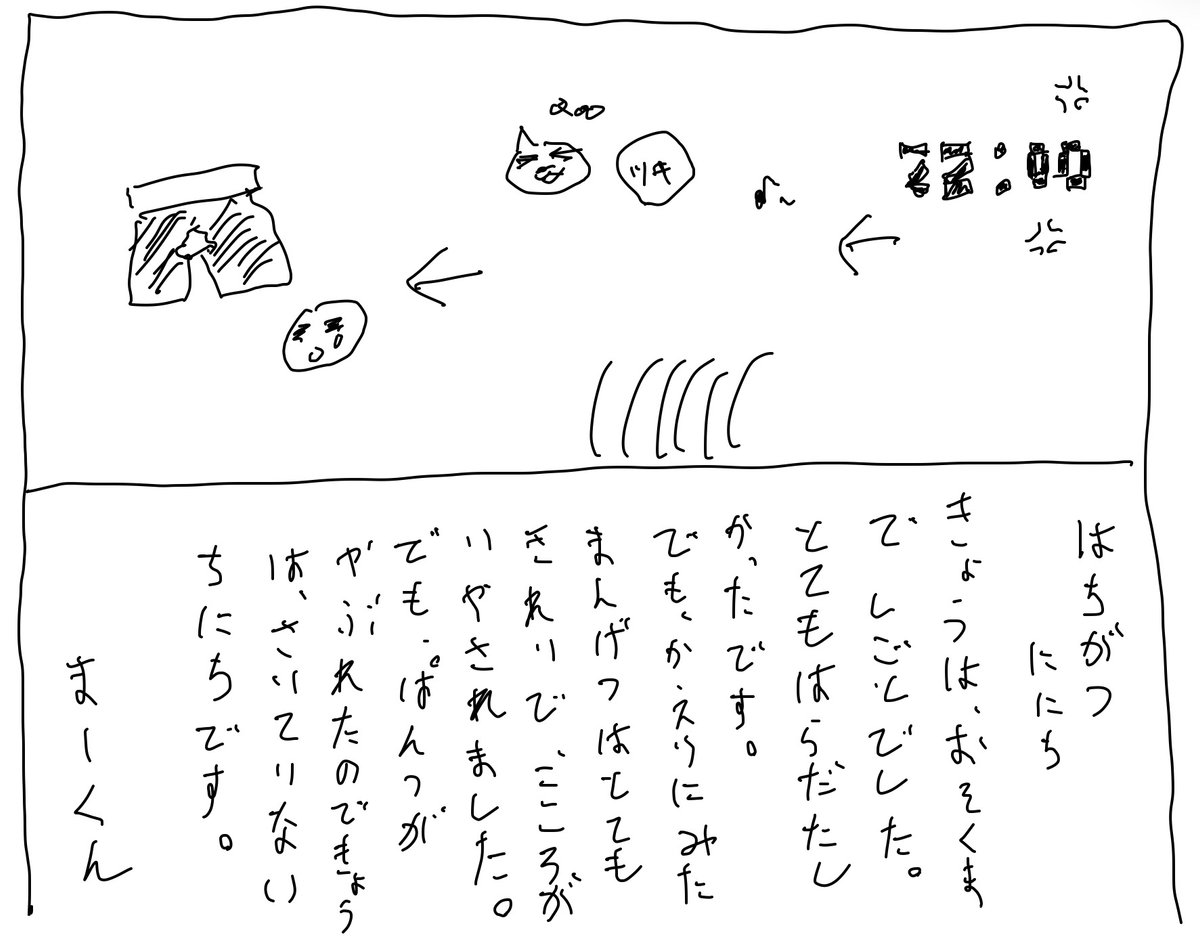 22:00
ツキ
はちがつ
ににち
きょうは、おそくま
で しごとでした。
とてもはらだたし
かったです。
でも、かえりにみた
まんげつはとても
きれいで、こころが
いやされました。
でも、ぱんつが
やぶれたのできょう
は、さいていない
ちにちです。
まーくん